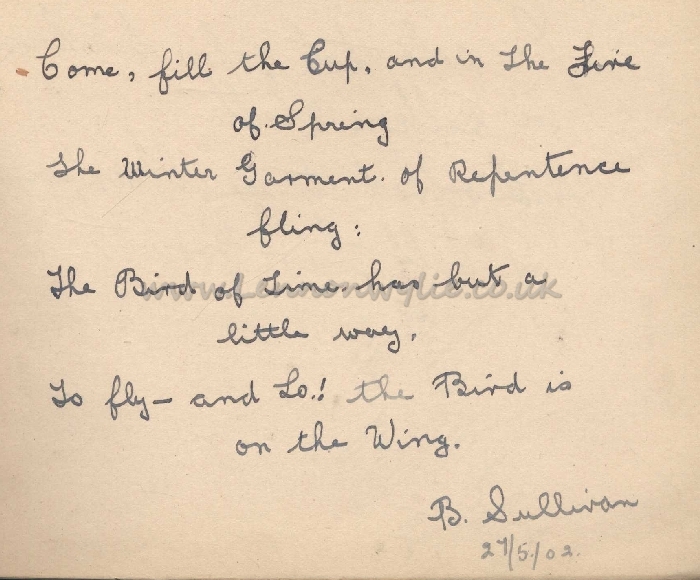 Come, fill the Cup, and in the Fire
of Spring
The Winter Garment of Repentence
fling:
The Bird of Time has but a
www.Lennonwylie.co.uk
little way,
To fly— and Lo.! the Bird is
on the Wing.
B. Sullivan
27/5/02.